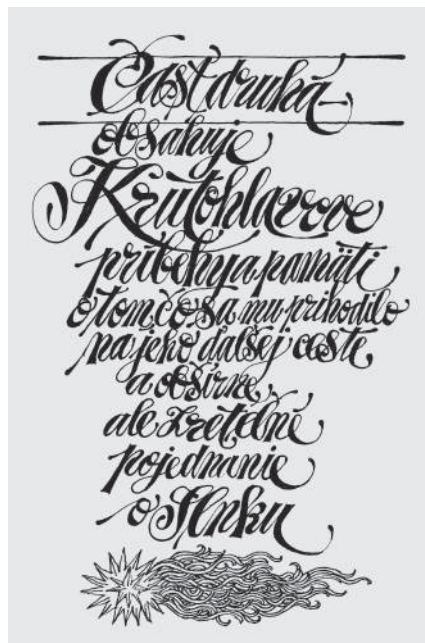 Časť druhá
obsahuje
Krútohlavove
príbehy a pamäti
o tom, čo sa mu prihodilo
na jeho ďalšej ceste,
a obšírne,
ale zreteľné
pojednanie
o Slnku